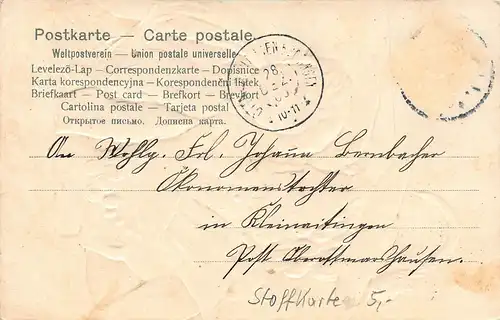 Postkarte — Carte postale.
Weltpostverein — Union postale universelle
Levelező-Lap — Correspondenzkarte — Dopisnice
Karta korespondencyjna — Korespondenční lístek
Briefkaart — Post card — Brefkort — Brevkort
Cartolina postale — Tarjeta postal
Открытое письмо. Дописна карта.
28.
10-11
An Wohlg. Frl. Johana Bernbacher
Ökonomenstochter
in Kleinaitingen
Post Oberottmarshausen.
Stoffkarte 5,-